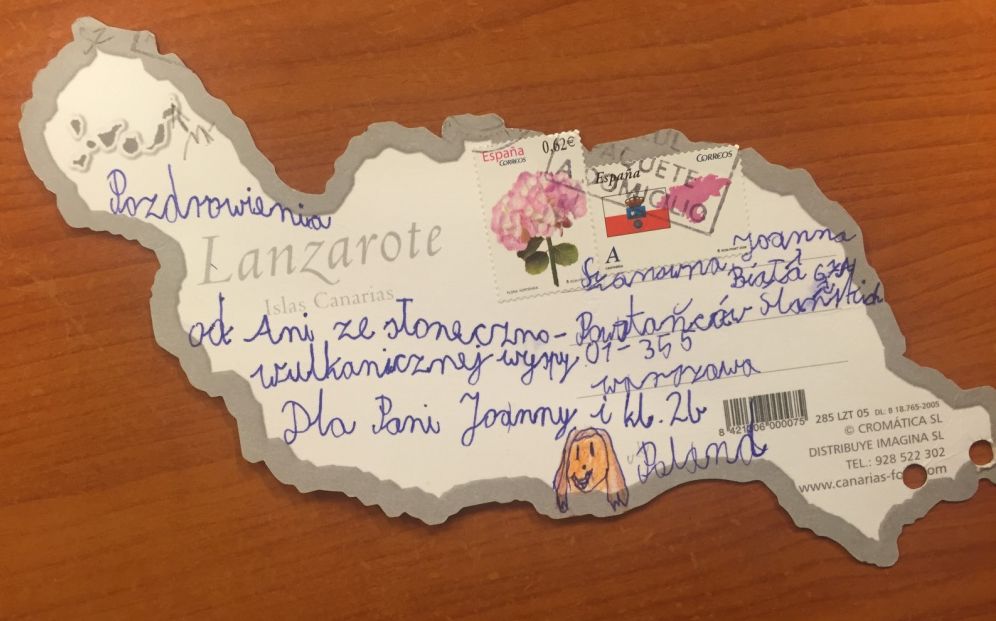 Pozdrowienia
Lanzarote
Islas Canarias
od Ani ze słoneczno-
wulkanicznej wyspy
Dla Pani Joanny i kl. 2b
España
CORREOS
0,62€
España
CORREOS
A
PAQUETE
Szanowna Joanna
Biała
Powstańców Śląskich
01-355
warszawa
Poland
8 421006 000075
285 LZT 05 DL: B 18.765-2005
© CROMÁTICA SL
DISTRIBUYE IMAGINA SL
TEL.: 928 522 302